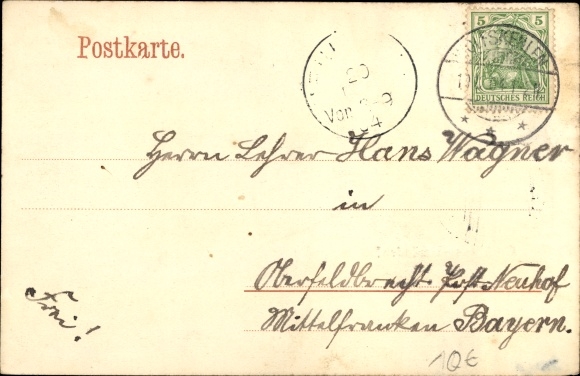 Postkarte.
5 5
DEUTSCHES REICH
20
Vorm 8-9
04
Herrn Lehrer Hans Wagner
in
Oberfeldbrecht. Post Neuhof
Mittelfranken Bayern.
Frei!
10€